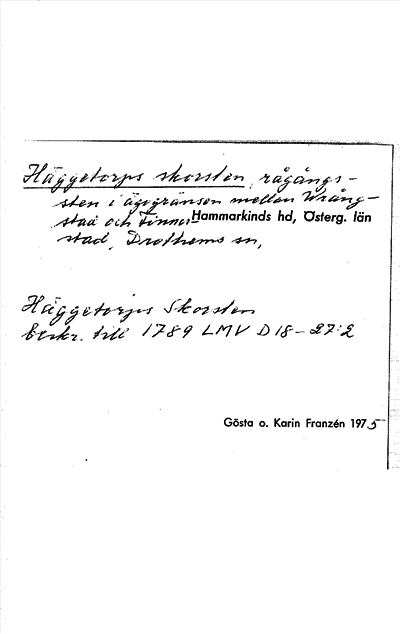 Häggetorps skorsten, rågångs-
sten i ägogränsen mellan Wrång-
stad och Finner- Hammarkinds hd, Österg. län
stad, Drothems sn,
Häggetorps Skorsten
beskr. till 1789 LMV D18-27:2
Gösta o. Karin Franzén 1975